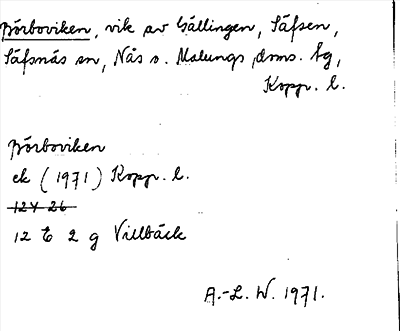 Börboviken, vik av Gällingen, Säfsen,
Säfsnäs sn, Nås o. Malungs dms. tg,
Kopp. l.
Börboviken
ek (1971) Kopp. l.
12Y 26
12 E 2 g Villbäck
A.-L. W. 1971.